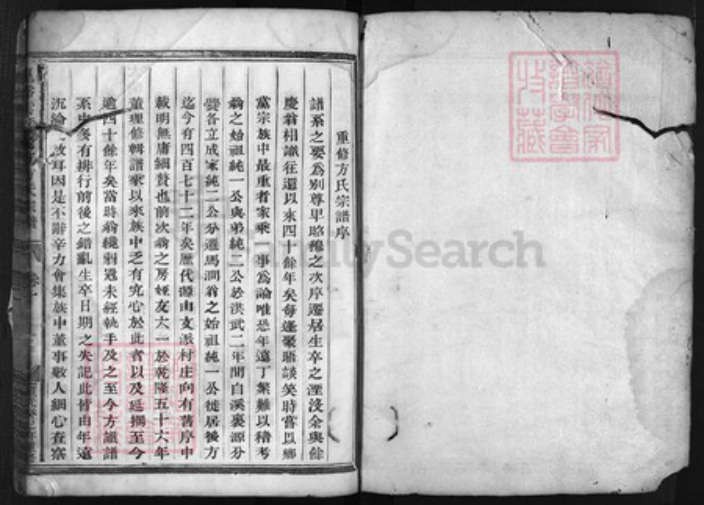 重修方氏宗譜序
譜系之要為別尊卑昭穆之次序遷居生卒之湮沒余與餘
慶翁相識往還以來四十餘年矣每逢聚晤談笑時嘗以鄉
黨宗族中最重者家乘一事為論唯恐年遠丁繁難以稽考
翁之始祖純一公與弟純二公於洪武二年間自溪裏源分
爨各立成家純二公分遷馬澗翁之始祖純一公徙居後方
迄今有四百七十二年矣歷代源由支派村庄向有舊序中
載明無庸細贅也前次翁之房姪友大一於乾隆五十六年
董理修輯譜乘以來族中乏有究心於此者以及延擱至今
逾四十餘年矣當時翁纔弱冠未經執手及之至今方讀譜
系中多有排行前後之錯亂生卒日期之失記此皆由年遠
沉淪之故耳因是不辭辛力會集族中董事數人細心查察
FamilySearch
譜學會
收藏